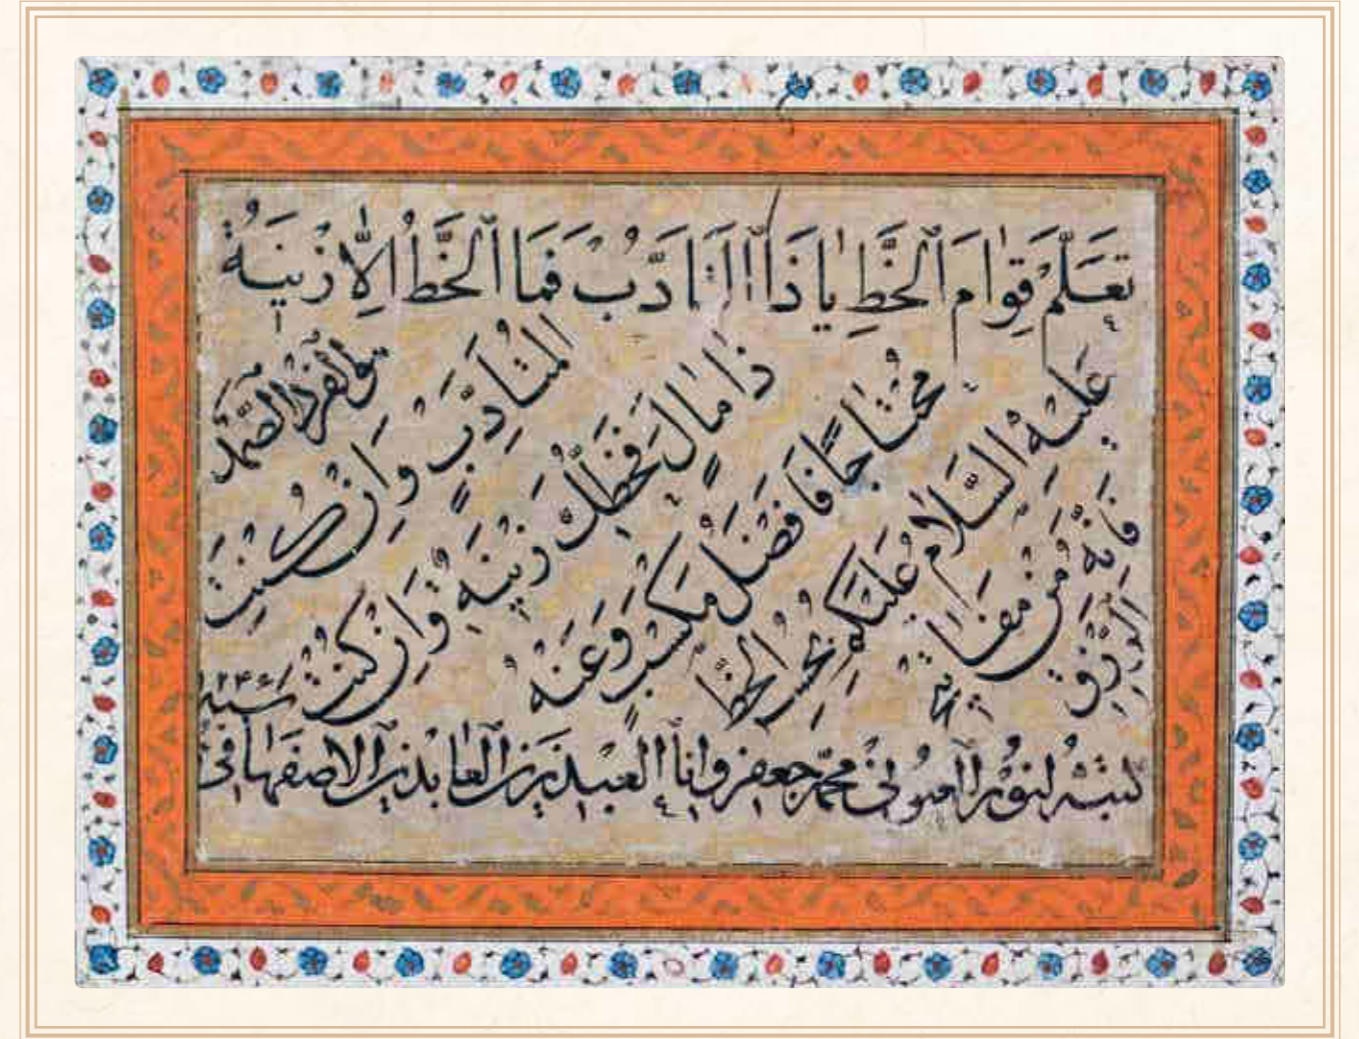 تَعَلَّمْ قِوَامَ الْخَطِّ يَا ذَا التَّأَدُّبِ فَمَا الْخَطُّ اِلَّا زِينَةُ
الفرد الصمد
المتأدب وان كنت
ذا مال فخطك زينة وان كنت
محتاجا فافضل مكسب وعنه
عليه السلام عليكم بحسن الخط
فانه من مفاتيح
الرزق
سنة
كتبته لنور العيونی محمد جعفر وانا العبد زين العابدين الاصفهانی